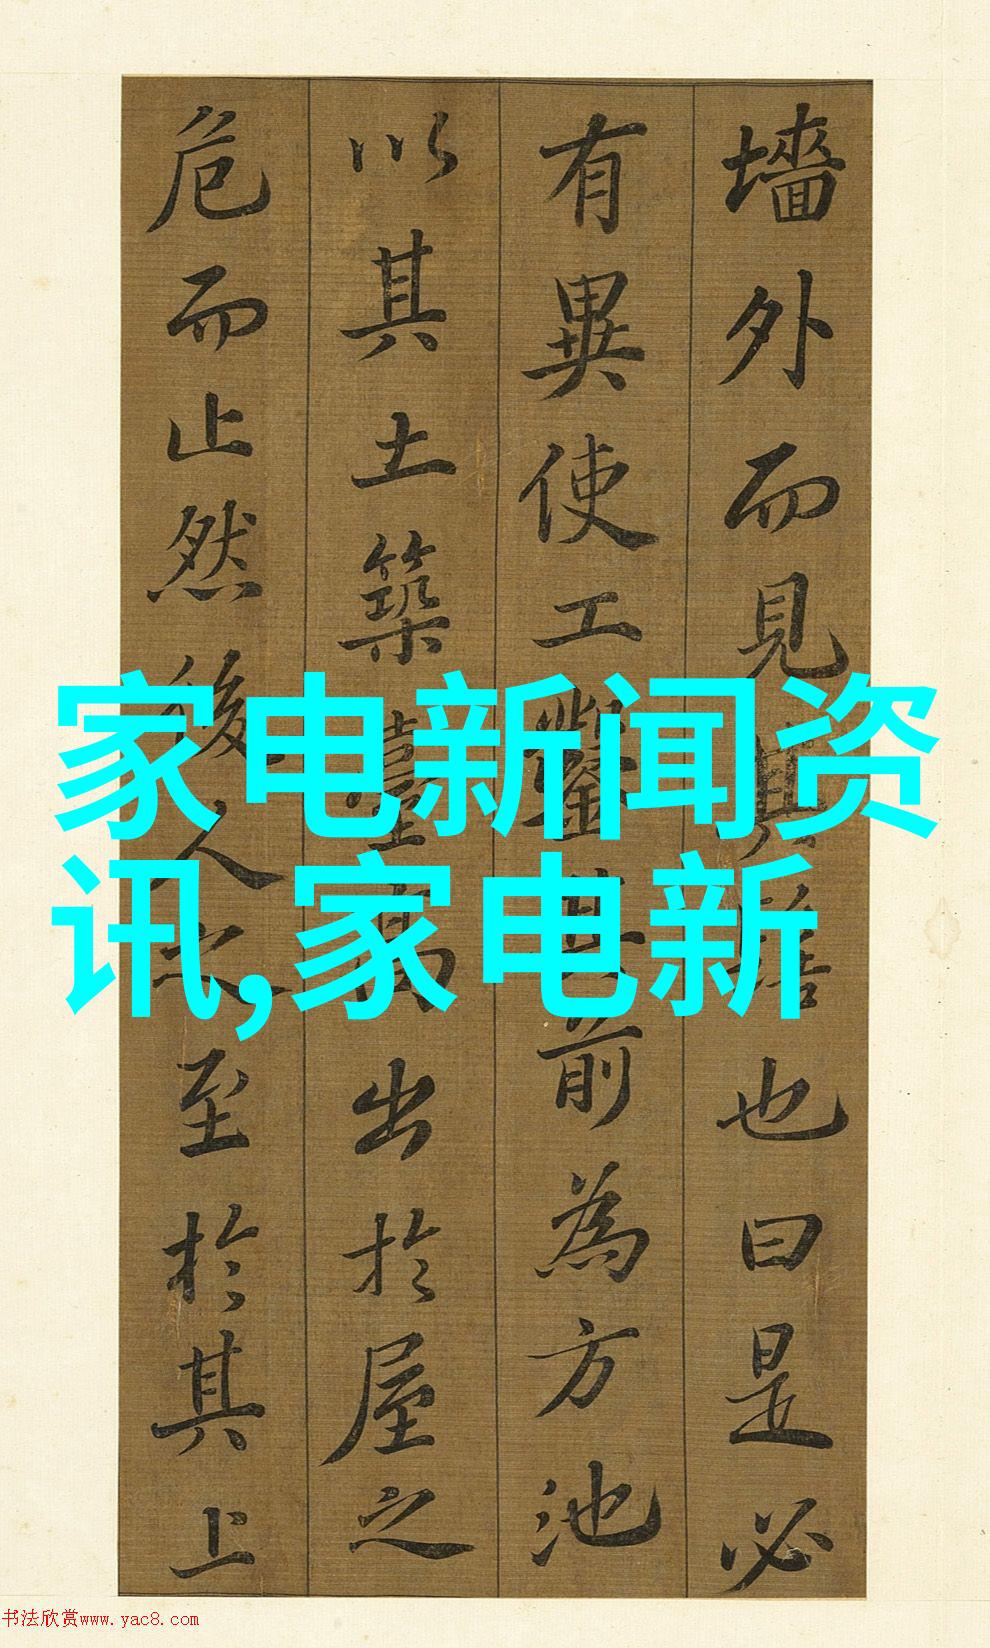 墻外而見其髻也曰是必
有異使工鑿其前為方池
以其土築臺高出於屋之
危而止然後人之至於其上
家电新闻资
讯,家电新
书法欣赏www.yac8.com